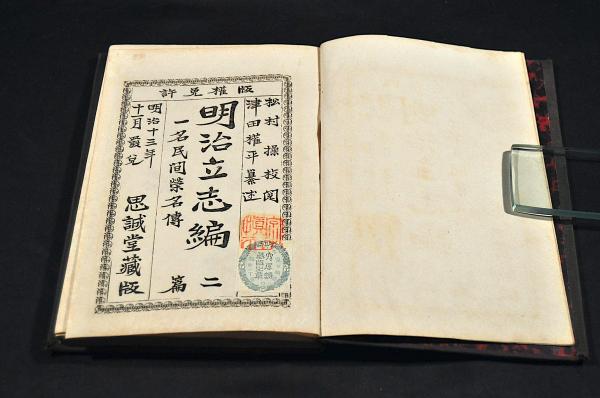 版權免許
松村操校閲
津田權平纂述
明治立志編 二篇
一名民間榮名傳
明治十三年
十一月發兌
思誠堂藏版